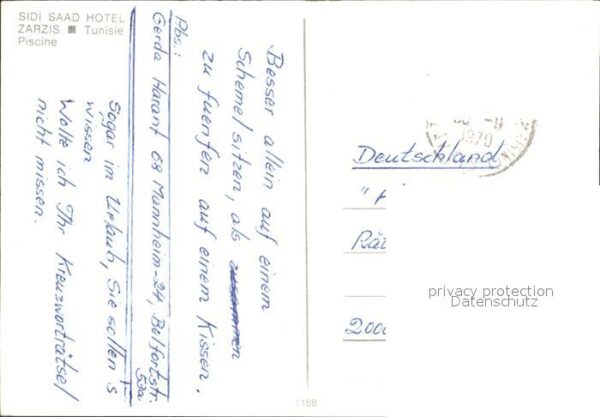 SIDI SAAD HOTEL
ZARZIS ■ Tunisie
Piscine
Besser allein auf einem
Schemel sitzen, als zusammen
zu fuenfen auf einem Kissen.
Abs.:
Gerda Harant 68 Mannheim-24, Belfortstr.
Sogar im Urlaub, Sie sollen's
wissen
Wollte ich Ihr Kreuzworträtsel
nicht missen.
1970
Deutschland
Rät
200
privacy protection
Datenschutz
1168